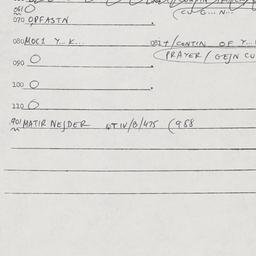 061 O
070 OPFASTN
080 MOCI Y... K... 081+/CONTIN OF Y...
(PRAYER / GEJN CU
090 O
100 O
110 O
901 MATIR NEJDER 4TIV/B/475 (988